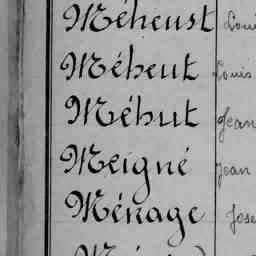 Méheust Loui
Méheut Louis
Méhut Jean
Meigné Jean
Ménage Jose